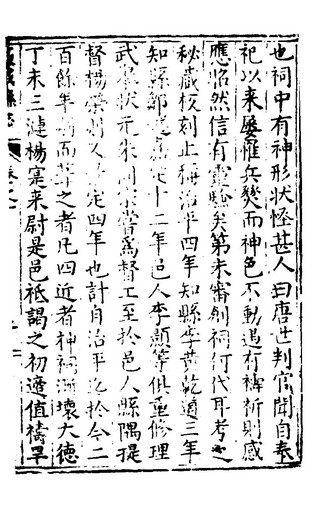 也祠中有神形狀怪甚人曰唐世判官聞自奉
祀以来屢罹兵燹而神色不動過有祷祈則感
應昭然信有靈驗矣第未審創祠何代耳考之
秘藏校刻止稱治平四年知縣李黄乾道三年
知縣鄭嘉定十二年邑人李顯等俱重修理
武舉状元朱嘗爲督工至於邑人縣隅提
督楊榮則又定四年也計自治平迄於今二
百餘年而之者凡四近者神祠壞大德
丁未三漣楊寔来尉是邑祗謁之初適值禱旱